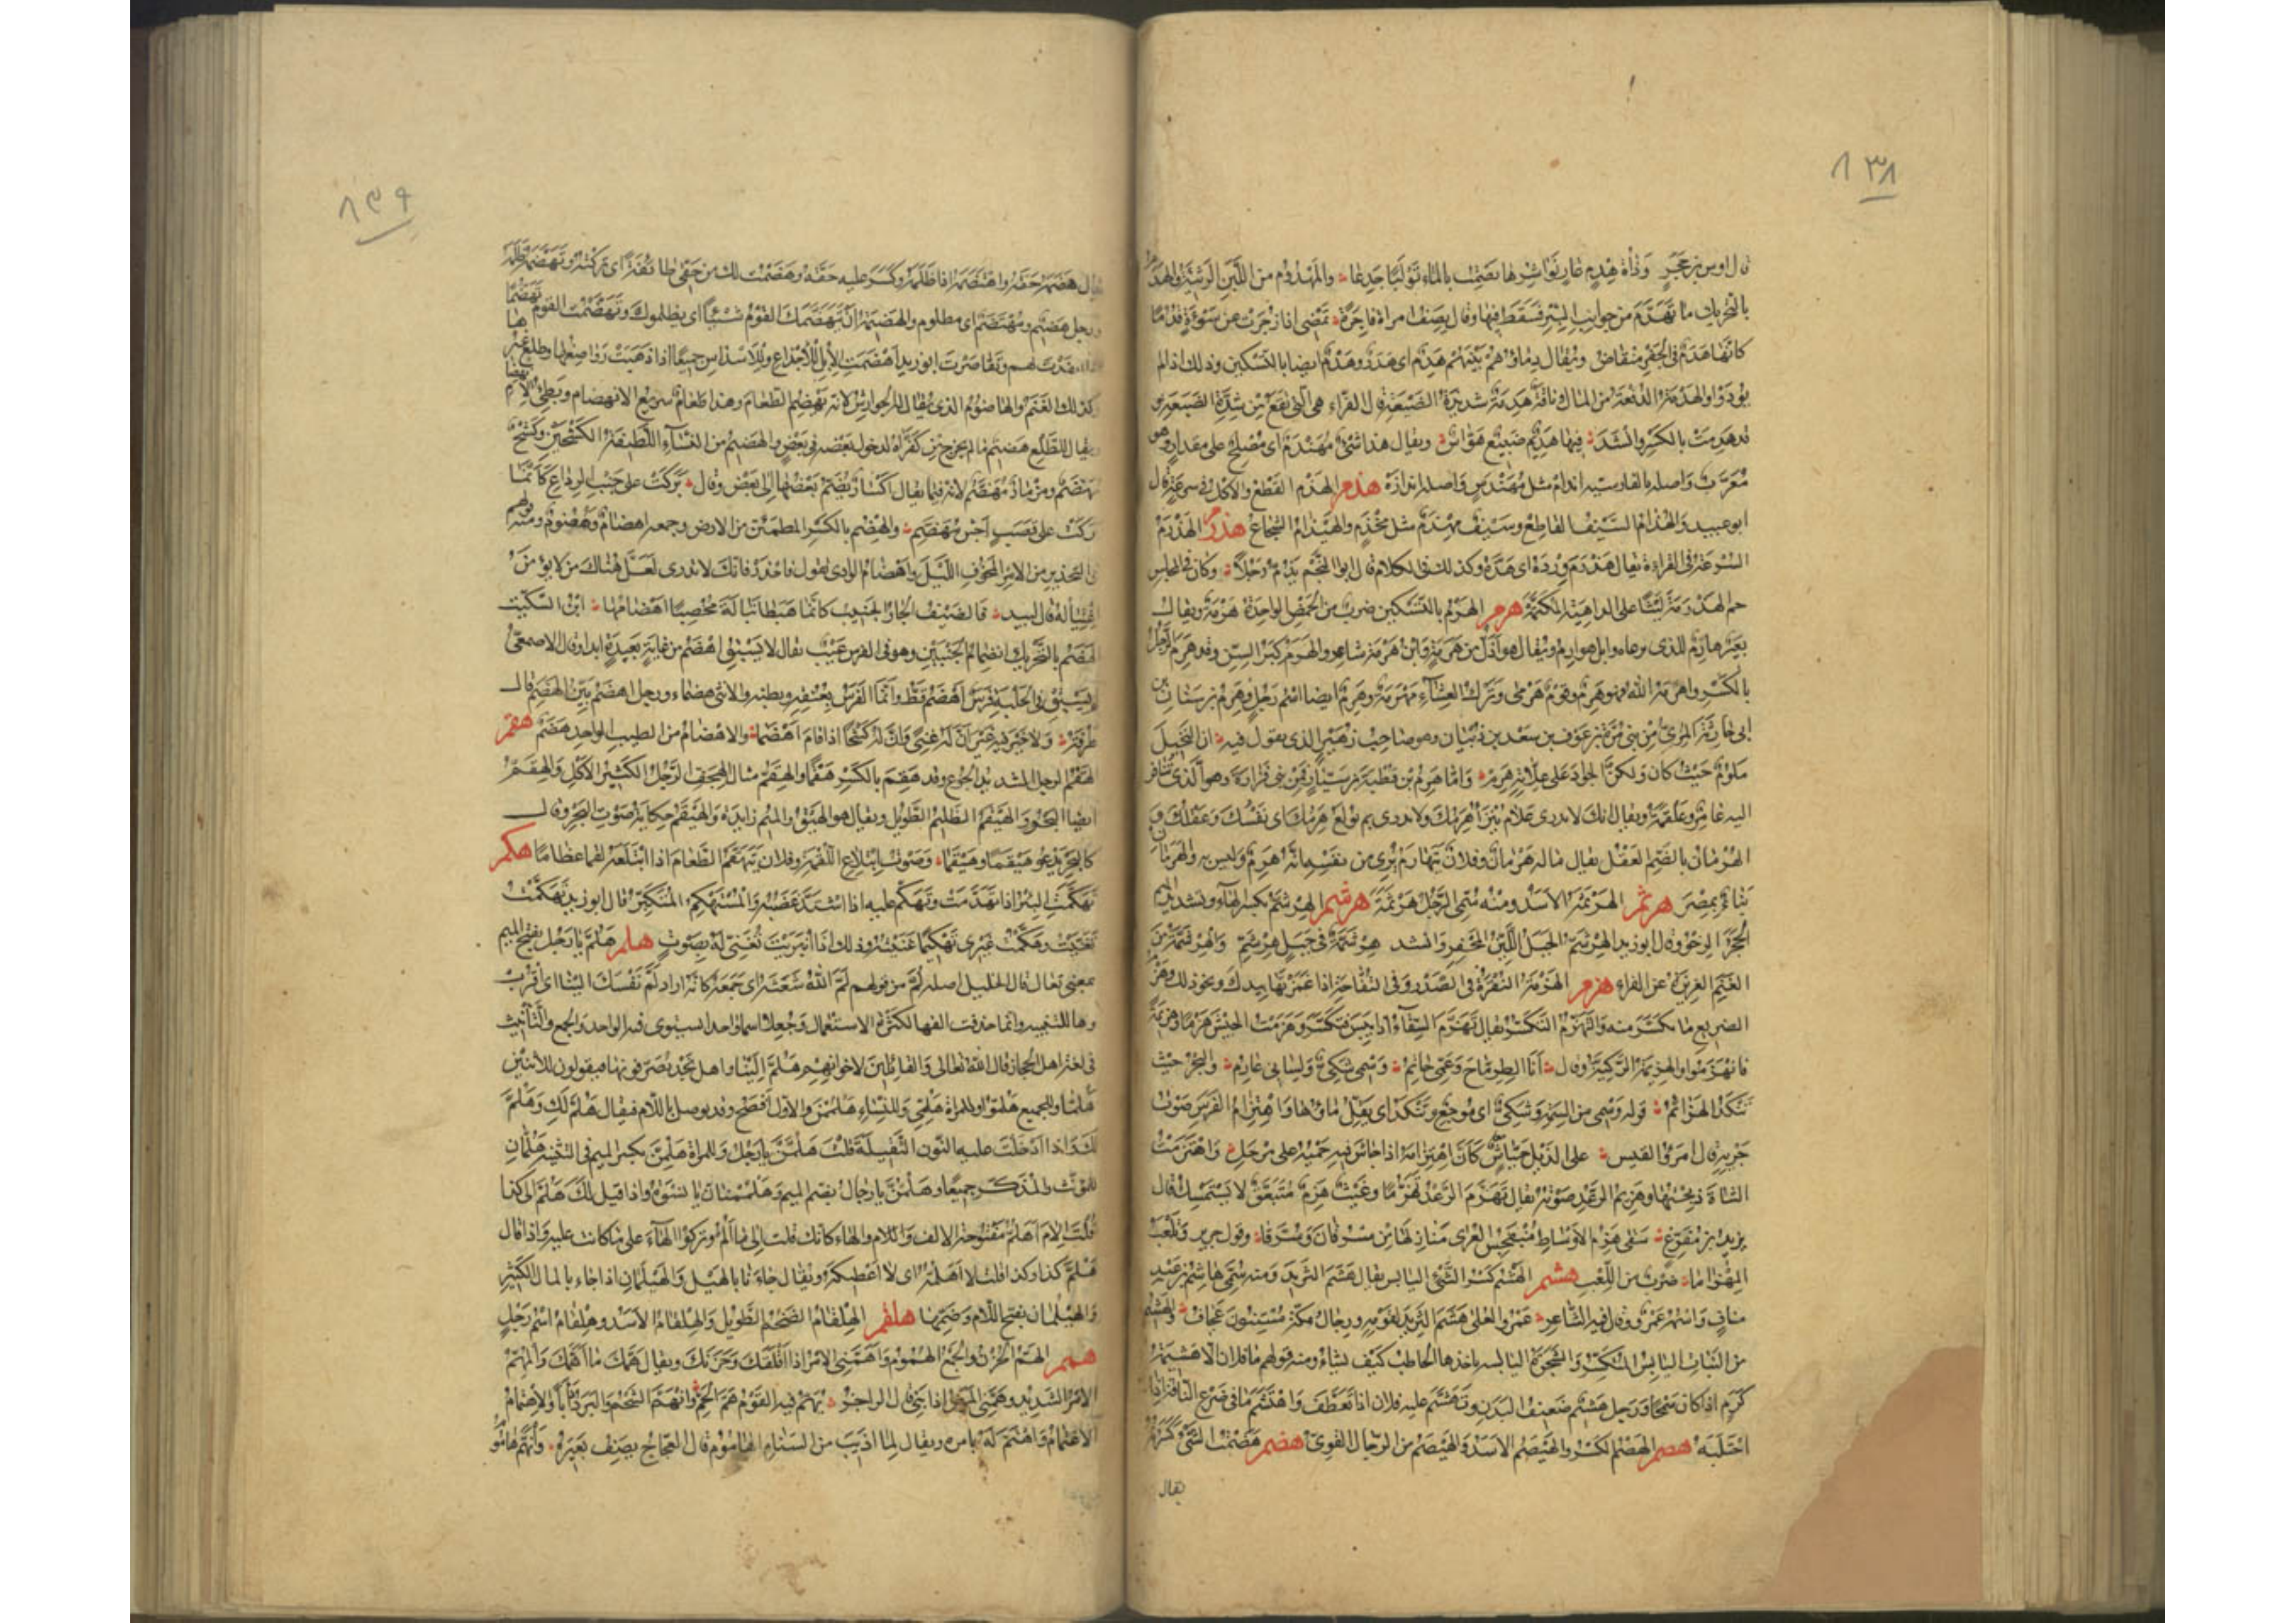 ٨٣٨
قال اوس بن حجر وذات هدم عار نواشرها تصمت بالماء تولبا جدعا والمهدوم من اللبن الرثيئة والهدم
بالتحريك ما تهدم من جوانب البئر فسقط فيها وقال يصف امراة فاجرة تمضى اذا زجرت عن سوءة قدما
كانها هدم فى الجفر منقاض ويقال دماؤهم بينهم هدم اى هدر وهدم ايضا بالتسكين وذلك اذا لم
يودوا والهدمة الدفعة من المال وناقة هدمة شديدة الضبعة قال الفراء هى التى تقع من شدة الضبعة
قد هدمت بالكسر وانشد فيها هديم ضبع هواس ويقال هذا شىء مهندم اى مصلح على مقدار وهو
معرب واصله بالفارسية اندام مثل مهندس واصله اندازه هذم الهذم القطع والاكل فى سرعة قال
ابو عبيد والهذام السيف القاطع وسيف مهذم مثل مخذم والهيذام الشجاع هذرم الهذرمة
السرعة فى القراءة يقال هذرم ورده اى هذه وكذلك فى الكلام قال ابو النجم يذم رجلا وكان فى المجلس
جم الهذرمة ليثا على الداهية المكتمه هرم الهرم بالتسكين ضرب من الحمض الواحدة هرمة ويقال
بعير هارم للذى يرعاه وابل هوارم ويقال هو اذل من هرمة وابن هرمة شاعر والهرم كبر السن وقد هرم الرجل
بالكسر واهرمه الله فهو هرم وقوم هرمى وترك العشاء مهرمة وهرم ايضا اسم رجل وهرم بن سنان بن
ابى حارثة المرى من بنى مرة بن عوف بن سعد بن ذبيان وهو صاحب زهير الذى يقول فيه ان البخيل
ملوم حيث كان ولكن الجواد على علاته هرم واما هرم بن قطبة بن سيار فمن بنى فزارة وهو الذى تنافر
اليه عامر وعلقمة ويقال انك لا تدرى علام ينزأ هرمك ولا تدرى بم يولع هرمك اى نفسك وعقلك
الهرمان بالضم العقل يقال ما له هرمان وفلان يتهارم يرى من نفسه انه هرم وليس به والهرمان
بناآن بمصر هرثم الهرثمة الاسد ومنه سمى الرجل هرثمة هرشم الهرشم بكسر الهاء وتشديد الميم
الحجر الرخو وقال ابو زيد الهرشم الجبل اللين المحفر وانشد هرشمة فى جبل هرشم والهرشمة من
الغنم الغزيرة عن الفراء هزم الهزمة النقرة فى الصدر وفى التفاحة اذا غمزتها بيدك ونحو ذلك وهزم
الضريع ما تكسر منه والتهزم التكسر يقال تهزم السقاء اذا يبس فتكسر وهزمت الجيش هزما وهزيمة
فانهزموا والهزيمة الركية وقال انا الطرماح وعمى حاتم وسمى شكى ولسانى عارم والبحر حيث
تنكد الهزائم قوله وسمى من السمة وشكى اى موجع وتنكد اى يقل ماؤها واهتزام الفرس صوت
جريه قال امرؤ القيس على الذبل جياش كان اهتزامه اذا جاش فيه حميه على مرجل واهتزمت
الشاة ذبحتها وهزيم الرعد صوته يقال تهزم الرعد تهزما وغيث هزم متبعق لا يستمسك قال
يزيد بن مفرغ سقى هزم الاوساط منبجس العرى منازلها من مسرقان وسرقا وقول جرير وتلعب
المهزاما ضرب من اللعب هشم الهشم كسر الشىء اليابس يقال هشم الثريد ومنه سمى هاشم بن عبد
مناف واسمه عمرو وقال فيه الشاعر عمرو العلى هشم الثريد لقومه ورجال مكة مسنتون عجاف والهشيم
من النبات اليابس المتكسر والشجرة البالية ياخذها الحاطب كيف يشاء ومنه قولهم ما فلان الا هشيمة
كرم اذا كان سمحا ورجل هشيم ضعيف البدن وتهشم عليه فلان اذا تعطف واهتشم ما فى ضرع الناقة اذا
احتلبه هصم الهصم الكسر والهيصم الاسد والهيصم من الرجال القوى هضم هضمت الشىء كسرته
يقال
٨٣٩
يقال هضمه حقه واهتضمه اذا ظلمه وكسر عليه حقه وهضمت لك من حقى طائفة اى تركته وتهضمه ظلمه
ورجل هضيم ومهتضم اى مظلوم والهضيمة ان يتهضمك القوم شيئا اى يظلموك وتهضمت القوم تهضما
انقدت لهم وتقاصرت ابو زيد اهضمت الابل للاجذاع وللاسداس جميعا اذا ذهبت رواضعها وطلع غيرها
كذلك الغنم والهاضوم الذى يقال له الجوارش لانه يهضم الطعام وهذا طعام سريع الانهضام وبطىء الانهضام
ويقال للطلع هضيم ما لم يخرج من كفراه لدخول بعضه فى بعض والهضيم من النساء اللطيفة الكشحين وكشح
مهضم ومزمار مهضم لانه فيما يقال اكسار يضم بعضها الى بعض وقال بركت على جنب الرداع كانما
بركت على قصب اجش مهضم والهضم بالكسر المطمئن من الارض وجمعه اهضام وهضوم ومنه قولهم
فى التحذير من الامر المخوف الليل واهضام الوادى يقول فاحذر فانك لا تدرى لعل هناك من لا يؤمن
اغتياله قال لبيد فالضيف والجار الجنيب كانما هبطا تبالة مخصبا اهضامها ابن السكيت
الهضم بالتحريك انضمام الجنبين وهو فى الفرس عيب يقال لا يسبق اهضم من غاية بعيدة ابدا وقال الاصمعى
لم يسبق فى الحلبة فرس اهضم قط وانما الفرس بعنقه وبطنه والانثى هضماء ورجل اهضم بين الهضم قال
طرفة ولا خير فيه غير ان له غنى وان له كشحا اذا قام اهضما والاهضام من الطيب الواحد هضم هقم
الهقم الرجل الشديد الجوع وقد هقم بالكسر هقما والهقم مثال الهجف الرجل الكثير الاكل والهقم
ايضا البحر والهيقم الظليم الطويل ويقال هو الهيق والميم زايدة والهيقم حكاية صوت البحر وقال
كالبحر يدعو هيقما وهيقما وصوت ابتلاع اللقمة وفلان يتهقم الطعام اذا ابتلعه لقما عظاما هكم
تهكمت البئر اذا تهدمت وتهكم عليه اذا اشتد غضبه والمستهكم المتكبر قال ابو زيد تهكمت
تغنيت وهكمت غيرى تهكيما غنيته وذلك اذا انبريت تغنى له بصوت هلم هلم يا رجل بفتح الميم
بمعنى تعال قال الخليل اصله لم من قولهم لم الله شعثه اى جمعه كانه اراد لم نفسك الينا اى اقرب
وها للتنبيه وانما حذفت الفها لكثرة الاستعمال وجعلا اسما واحدا يستوى فيه الواحد والجمع والتانيث
فى لغة اهل الحجاز قال الله تعالى والقائلين لاخوانهم هلم الينا واهل نجد يصرفونها فيقولون للاثنين
هلما وللجميع هلموا وللمراة هلمى وللنساء هلممن والاول افصح وقد يوصل باللام فيقال هلم لك وهلم
لكما واذا ادخلت عليه النون الثقيلة قلت هلمن يا رجل وللمراة هلمن بكسر الميم وفى التثنية هلمان
للمؤنث والمذكر جميعا وهلمن يا رجال بضم الميم وهلممنان يا نسوة واذا قيل لك هلم الى كذا
قلت الام اهلم مفتوحة الالف واللام والهاء كانك قلت الى ما الم وتركوا الهاء على ما كانت عليه واذا قال
هلم كذا وكذا قلت لا اهلمه اى لا اعطيكه ويقال جاءنا بالهيل والهيلمان اذا جاء بالمال الكثير
والهيلمان بفتح اللام وضمها هلقم الهلقام الضخم الطويل والهلقام الاسد وهلقام اسم رجل
همم الهم الحزن والجمع الهموم واهمنى الامر اذا اقلقك وحزنك ويقال همك ما اهمك والمهم
الامر الشديد وهمنى المرض اذا بنى قال الراجز يهم فيه القوم هم الحم وانهم الشحم والبرد ذابا والاهتمام
الاغتمام واهتم له بامره ويقال لما اذيب من السنام الهاموم قال العجاج يصف بعيره وانهم هاموم